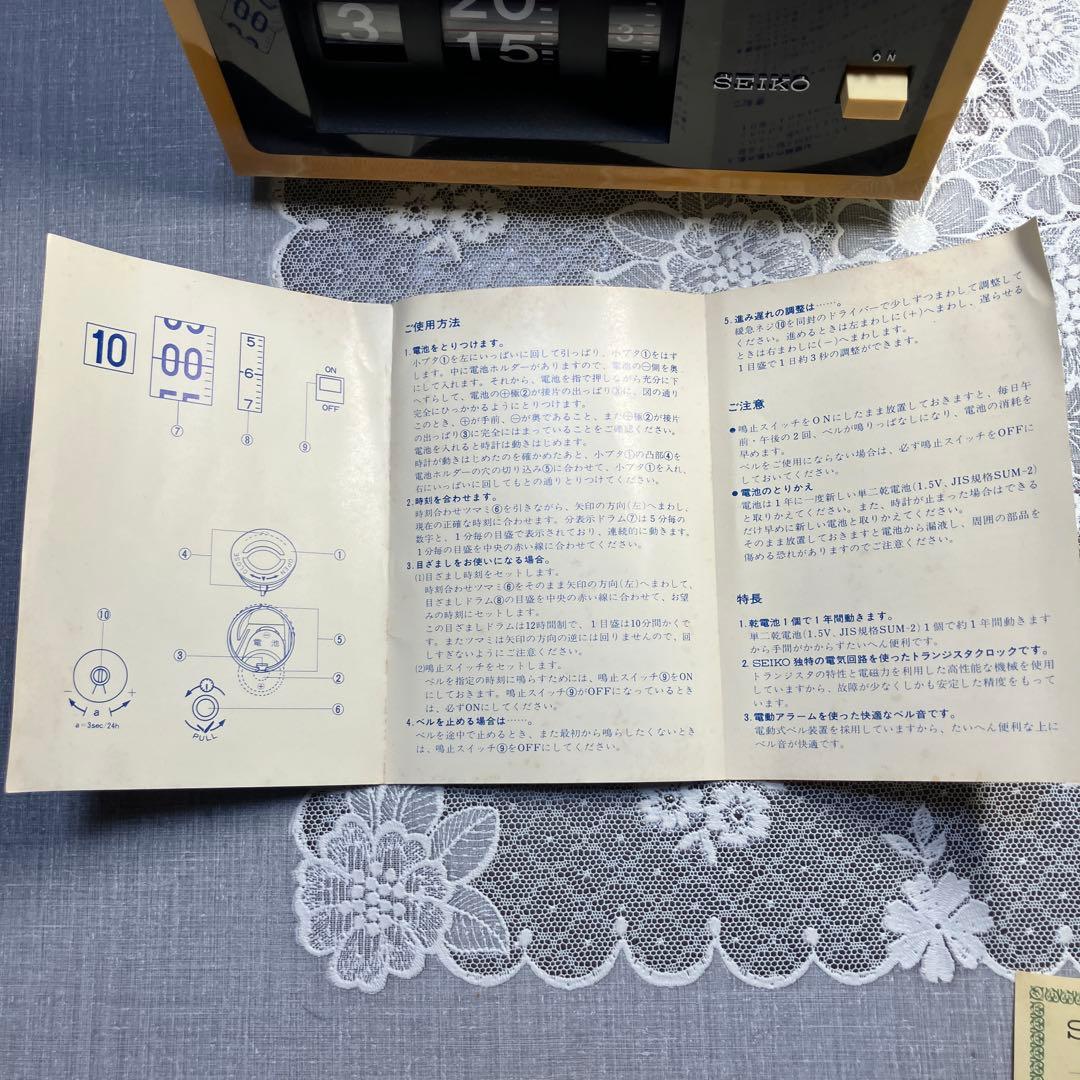 3
20
15
3
SEIKO
ON
10
00
5
6
7
ON
OFF
⑦
⑧
⑨
④
①
OPEN
CLOSE
⑩
電池
③
⑤
②
⑥
a
a=3sec/24h
PULL
ご使用方法
1.電池をとりつけます。
小ブタ①を左にいっぱいに回して引っぱり、小ブタ①をはず
します。中に電池ホルダーがありますので、電池の⊖側を奥
にして入れます。それから、電池を指で押しながら充分に下
へずらして、電池の⊕極②が接片の出っぱり③に、図の通り
完全にひっかかるようにとりつけます。
このとき、⊕が手前、⊖が奥であること、また⊕極②が接片
の出っぱり③に完全にはまっていることをご確認ください。
電池を入れると時計は動きはじめます。
時計が動きはじめたのを確かめたあと、小ブタ①の凸部④を
電池ホルダーの穴の切り込み⑤に合わせて、小ブタ①を入れ、
右にいっぱいに回してもとの通りとりつけてください。
2.時刻を合わせます。
時刻合わせツマミ⑥を引きながら、矢印の方向(左)へまわし、
現在の正確な時刻に合わせます。分表示ドラム⑦は5分毎の
数字と、1分毎の目盛で表示されており、連続的に動きます。
1分毎の目盛を中央の赤い線に合わせてください。
3.目ざましをお使いになる場合。
⑴目ざまし時刻をセットします。
時刻合わせツマミ⑥をそのまま矢印の方向(左)へまわして、
目ざましドラム⑧の目盛を中央の赤い線に合わせて、お望
みの時刻にセットします。
この目ざましドラムは12時間制で、1目盛は10分間かくで
す。またツマミは矢印の方向の逆には回りませんので、回
しすぎないようにご注意ください。
⑵鳴止スイッチをセットします。
ベルを指定の時刻に鳴らすためには、鳴止スイッチ⑨をON
にしておきます。鳴止スイッチ⑨がOFFになっているとき
は、必ずONにしてください。
4.ベルを止める場合は……。
ベルを途中で止めるとき、また最初から鳴らしたくないとき
は、鳴止スイッチ⑨をOFFにしてください。
5.進み遅れの調整は……。
緩急ネジ⑩を同封のドライバーで少しずつまわして調整して
ください。進めるときは左まわしに(+)へまわし、遅らせる
ときは右まわしに(−)へまわします。
1目盛で1日約3秒の調整ができます。
ご注意
●鳴止スイッチをONにしたまま放置しておきますと、毎日午
前・午後の2回、ベルが鳴りっぱなしになり、電池の消耗を
早めます。
ベルをご使用にならない場合は、必ず鳴止スイッチをOFFに
しておいてください。
●電池のとりかえ
電池は1年に一度新しい単二乾電池(1.5V、JIS規格SUM-2)
と取りかえてください。また、時計が止まった場合はできる
だけ早めに新しい電池と取りかえてください。
そのまま放置しておきますと電池から漏液し、周囲の部品を
傷める恐れがありますのでご注意ください。
特長
1.乾電池1個で1年間動きます。
単二乾電池(1.5V、JIS規格SUM-2)1個で約1年間動きます
から手間がかからずたいへん便利です。
2.SEIKO独特の電気回路を使ったトランジスタクロックです。
トランジスタの特性と電磁力を利用した高性能な機械を使用
していますから、故障が少なくしかも安定した精度をもって
います。
3.電動アラームを使った快適なベル音です。
電動式ベル装置を採用していますから、たいへん便利な上に
ベル音が快適です。
S